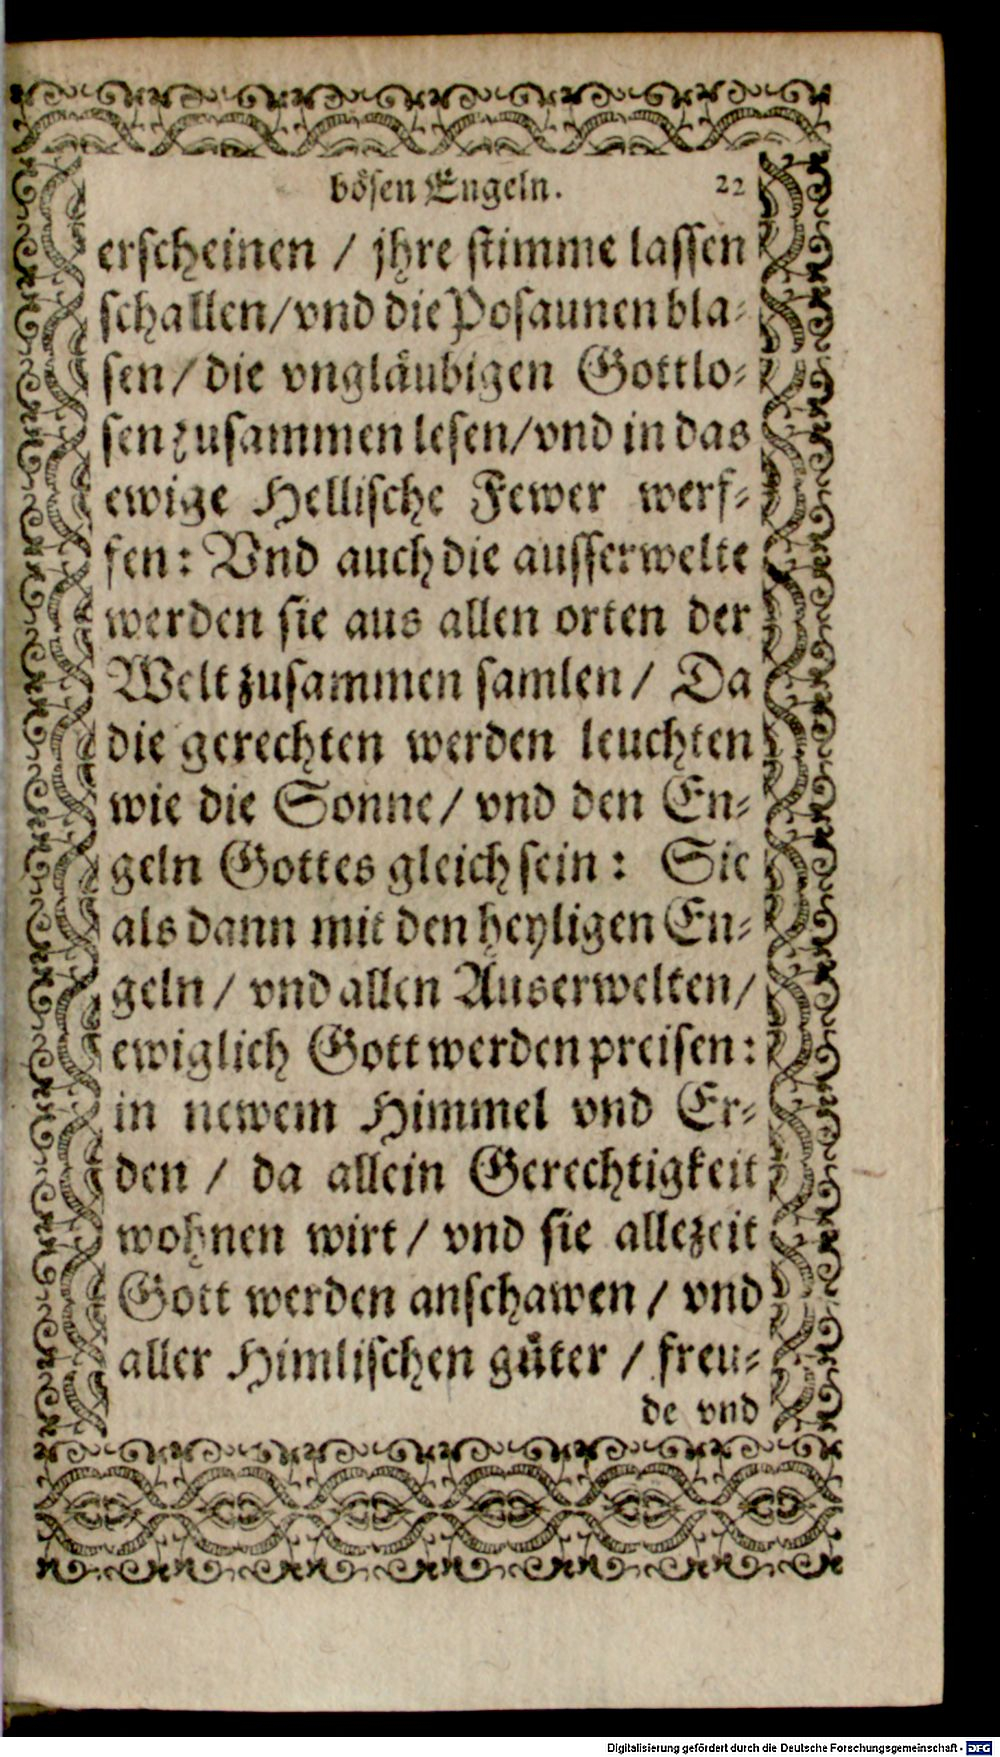 bösen Engeln. 22
erscheinen / jhre stimme lassen
schallen/vnd die Posaunen bla-
sen/die vngläubigen Gottlo-
sen zusammen lesen/vnd in das
ewige Hellische Fewer werf-
fen: Vnd auch die ausserwelte
werden sie aus allen orten der
Welt zusammen samlen / Da
die gerechten werden leuchten
wie die Sonne/ vnd den En-
geln Gottes gleich sein: Sie
als dann mit den heyligen En-
geln / vnd allen Auserwelten/
ewiglich Gott werden preisen:
in newem Himmel vnd Er-
den / da allein Gerechtigkeit
wohnen wirt / vnd sie allezeit
Gott werden anschawen / vnd
aller Himlischen güter / freu-
de vnd
Digitalisierung gefördert durch die Deutsche Forschungsgemeinschaft - DFG